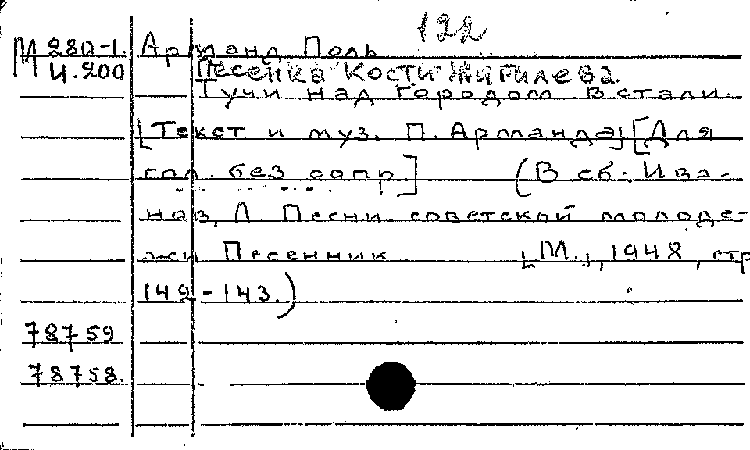 122
М 280-1. Арманд Поль
И.200 Песенка Кости Жигилева.
Тучи над городом встали.
[Текст и муз. П. Арманда] [Для
гол. без сопр.] (В сб.: Ива-
нов, Л. Песни советской молоде-
жи Песенник [М.], 1948, стр
142-143.)
78759
78758.